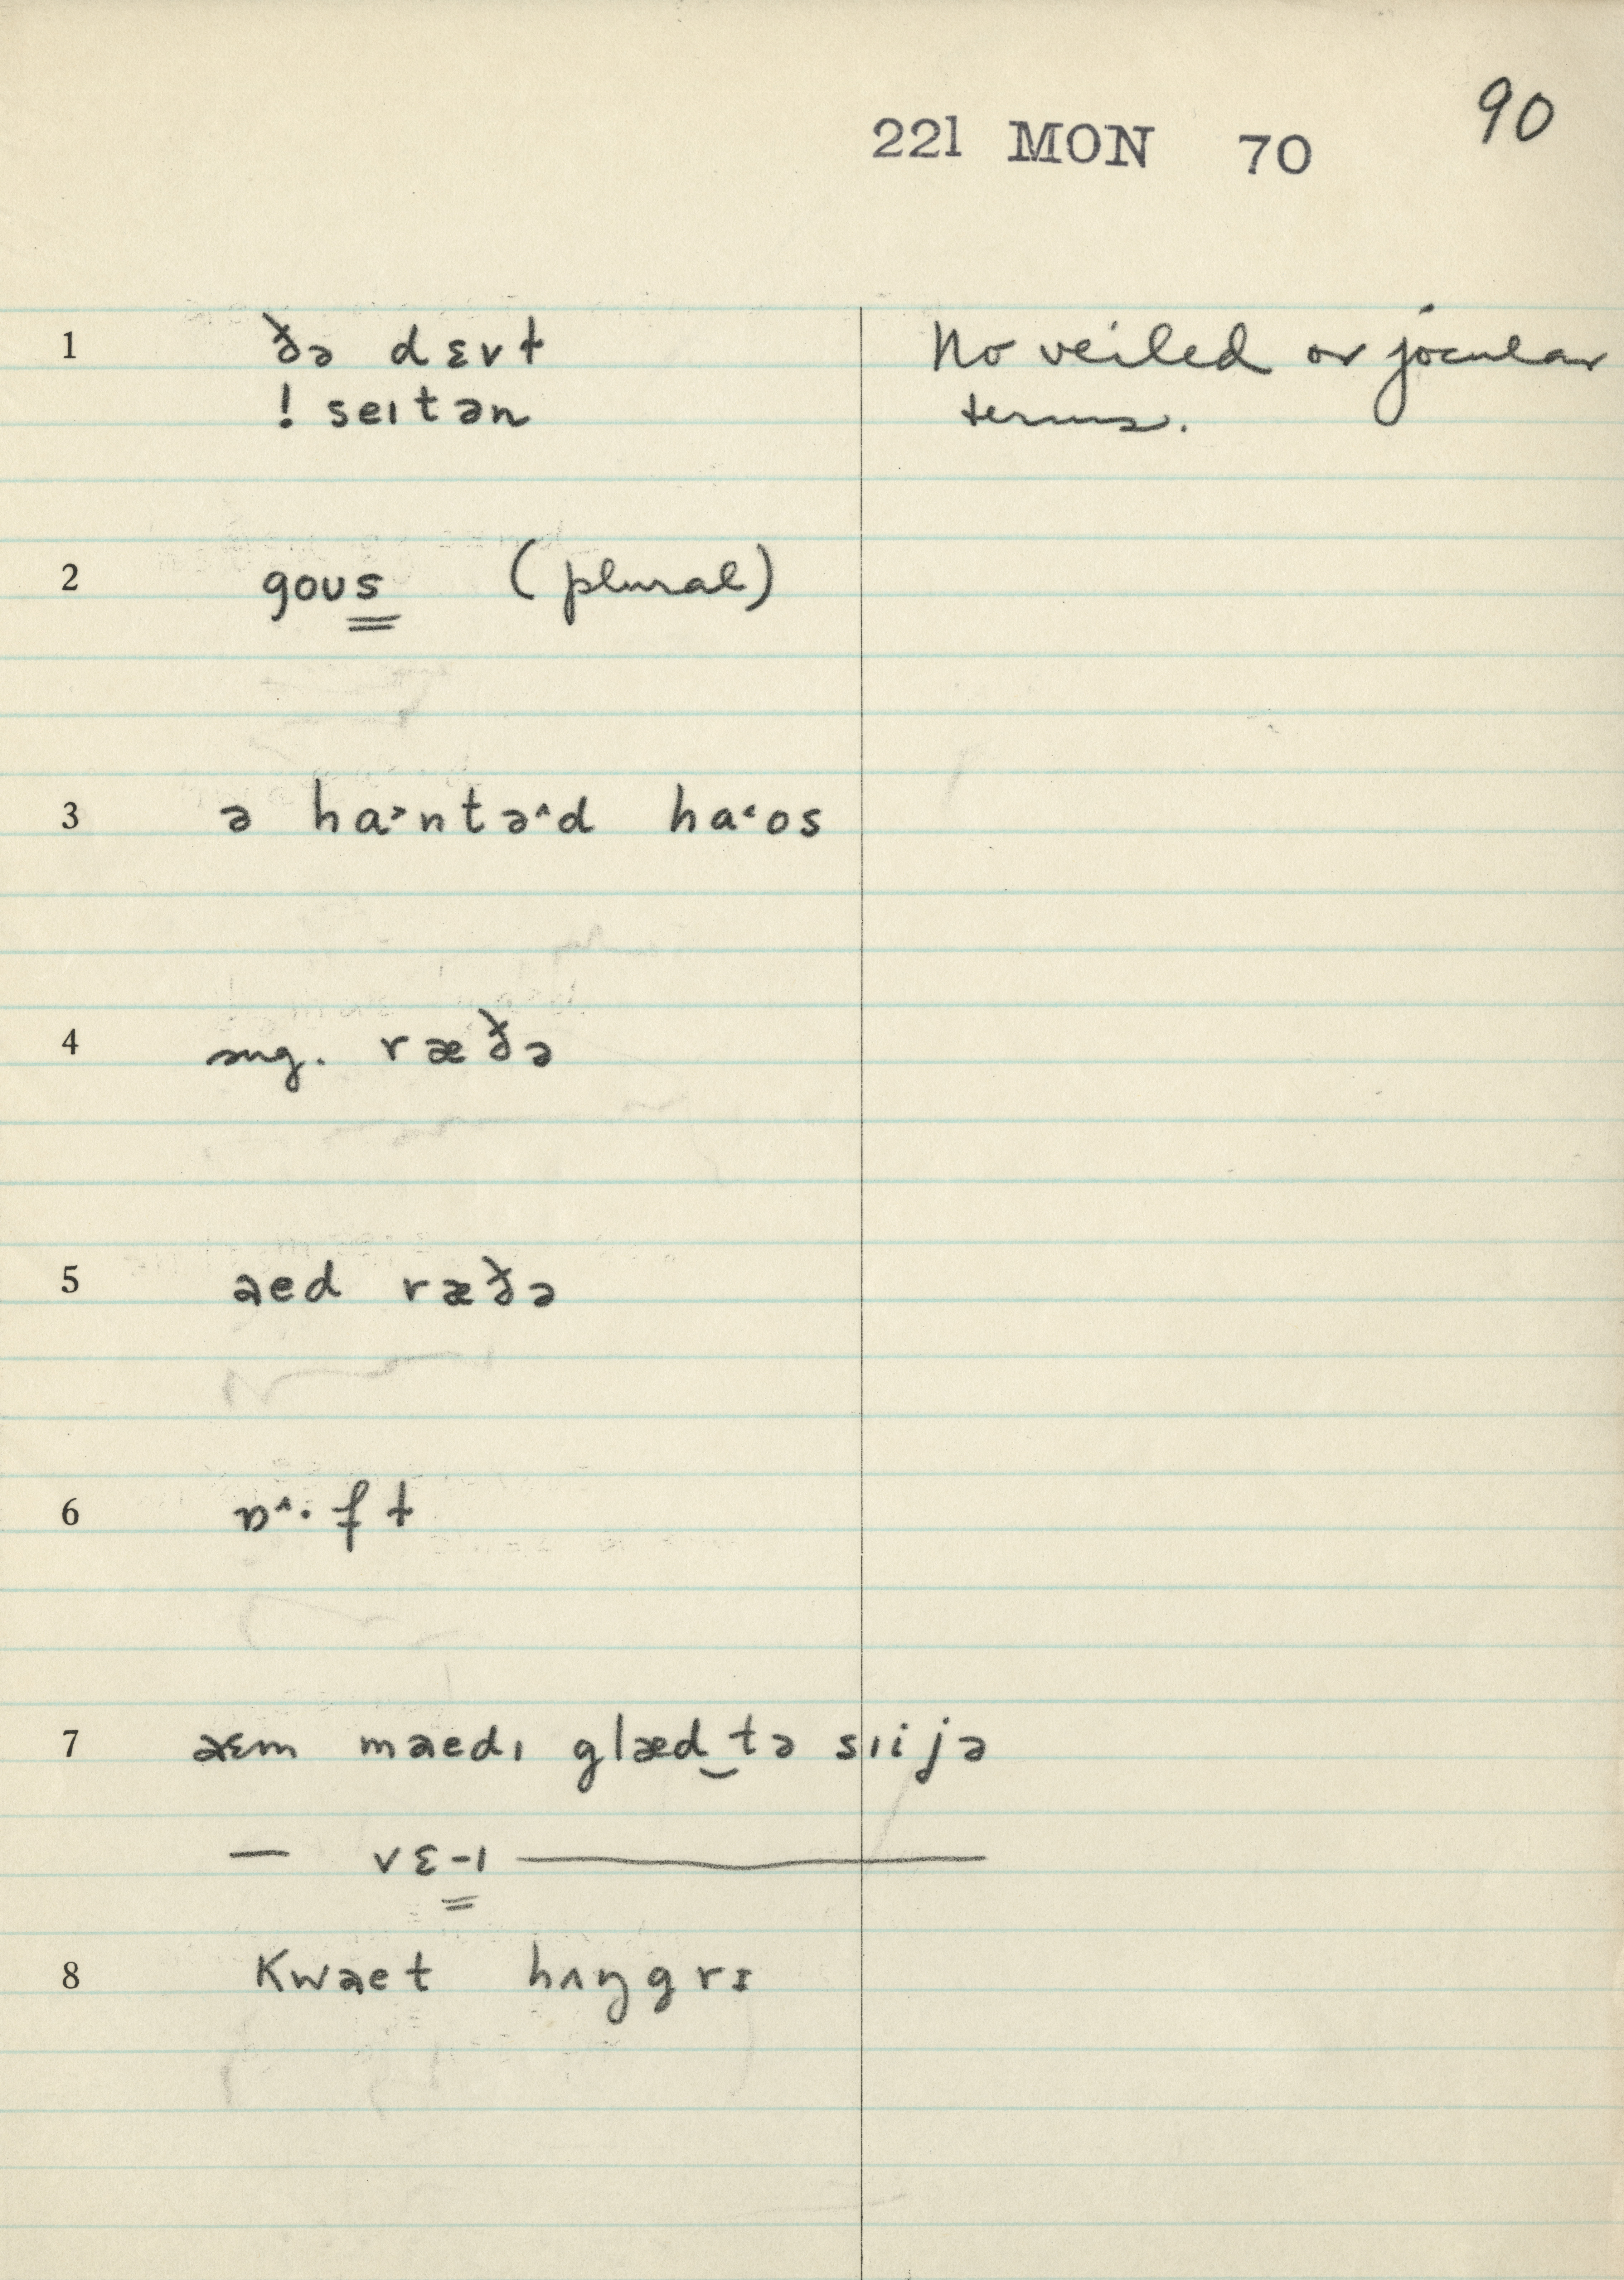 221 MON 70 90
1 ðə dɛvɫ No veiled or jocular
! seɪtən terms.
2 goʊs (plural)
3 ə ha˃ntə^d ha˂os
4 sng. ræðə
5 aed ræðə
6 ɒ^·ft
7 aɛm maedɪ glæd‿tə sɪijə
— vɛ-ɪ —
8 Kwaet hʌŋgrɪ